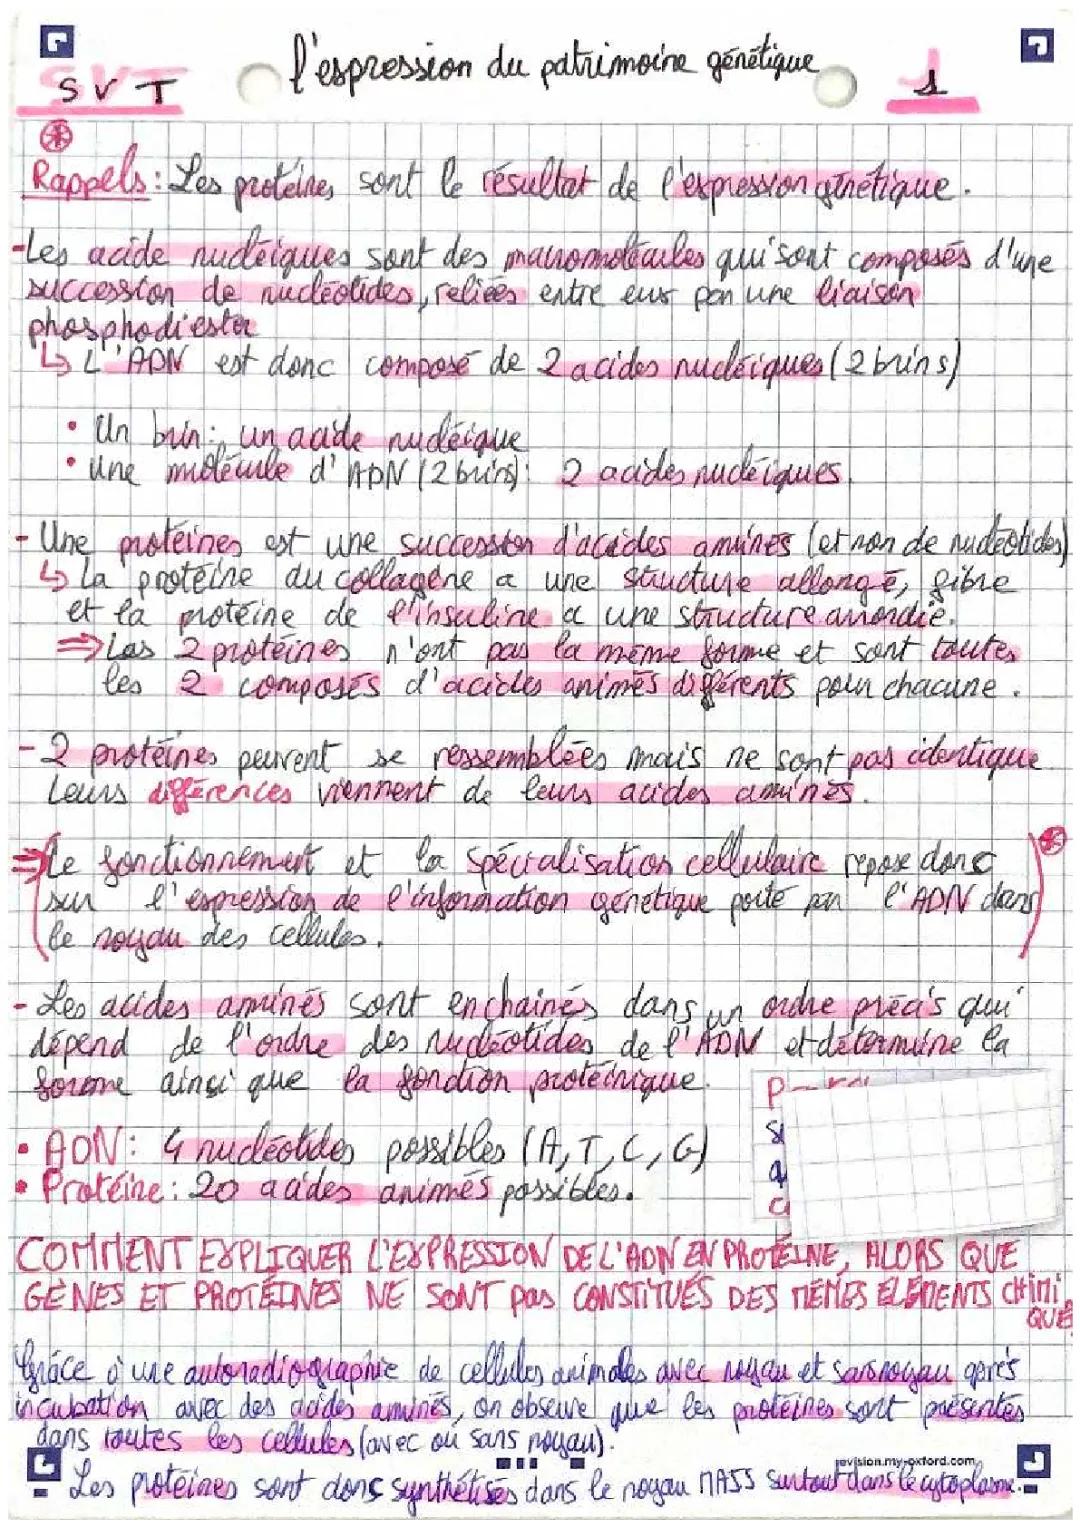 SVT l'expression du patrimoine génétique 1
Rappels : Les protéines sont le résultat de l'expression génétique.
-Les acide nucléiques sont des macromolécules qui sont composés d'une
succession de nucléotides, reliées entre eux par une liaison
phosphodiester
↳ L'ADN est donc composé de 2 acides nucléiques (2 brins)
• Un brin : un acide nucléique
• Une molécule d'ADN (2 brins) : 2 acides nucléiques.
- Une protéines est une succession d'acides aminés (et non de nucléotides)
↳ La protéine du collagène a une structure allongé, fibre
et la protéine de l'insuline a une structure arrondie.
⇒ Las 2 protéines n'ont pas la même forme et sont toutes
les 2 composés d'acides animés différents pour chacune.
- 2 protéines peuvent se ressemblées mais ne sont pas identique
Leurs différences viennent de leurs acides aminés.
⇒ Le fonctionnement et la spécialisation cellulaire repose donc
sur l'expression de l'information génétique porté par l'ADN dans
le noyau des cellules.
- Les acides aminés sont enchainés dans un ordre précis qui
dépend de l'ordre des nucléotides de l'ADN et détermine la
forme ainsi que la fonction protéinique.
• ADN : 4 nucléotides possibles (A, T, C, G)
• Protéine : 20 acides animés possibles.
COMMENT EXPLIQUER L'EXPRESSION DE L'ADN EN PROTÉINE, ALORS QUE
GÈNES ET PROTÉINES NE SONT pas CONSTITUÉS DES MÊMES ELEMENTS CHIMI
QUE
Grâce à une autoradiographie de cellules animales avec noyau et sans noyau après
incubation avec des acides aminés, on observe que les protéines sont présentes
dans toutes les cellules (avec ou sans noyau).
revision.my-oxford.com
Les protéines sont donc synthétisés dans le noyau MAIS surtout dans le cytoplasme.